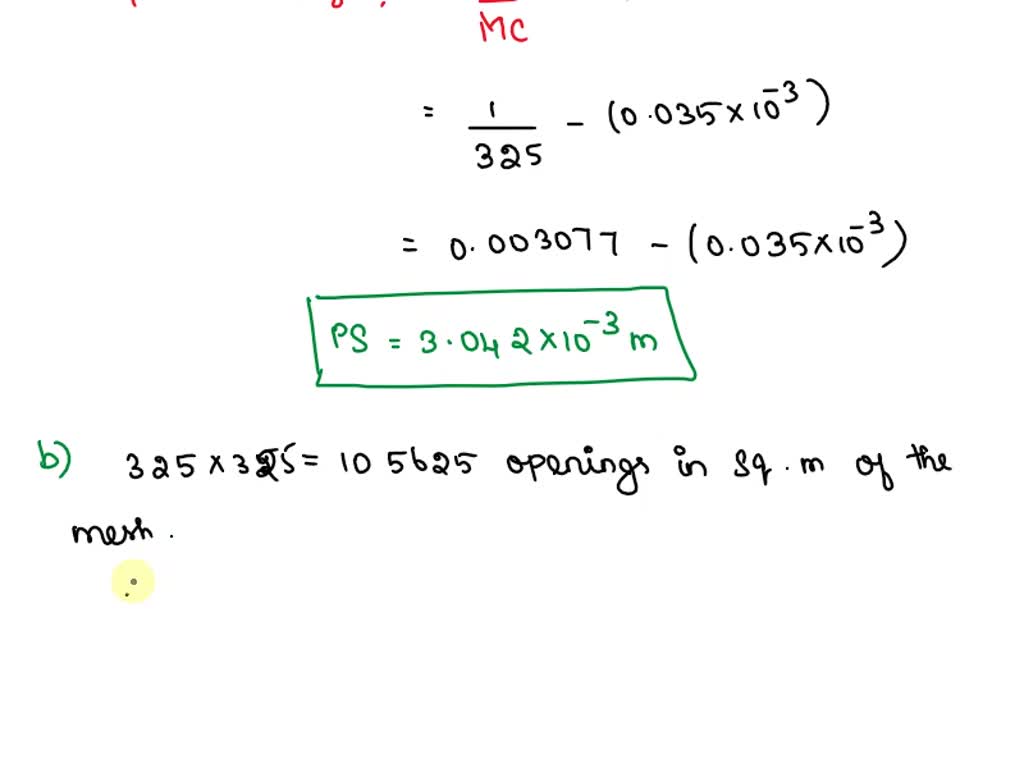 MC
= 1/325 - (0.035×10⁻³)
= 0.003077 - (0.035×10⁻³)
PS = 3.042×10⁻³ m
b) 325×325 = 105625 openings in sq.m of the
mesh.